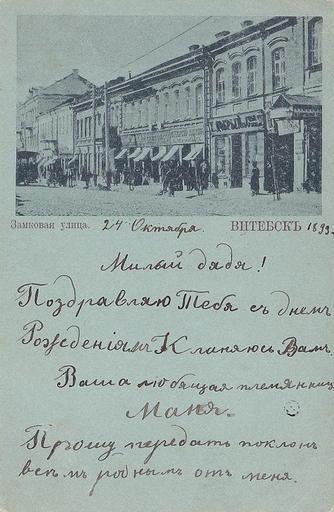 Замковая улица. 24 Октября. ВИТЕБСКЪ 1899
Милый дядя!
Поздравляю Тебя съ днемъ
Рожденія и Кланяюсь Вамъ,
Ваша любящая племянница
Маня.
Прошу передать поклонъ
всѣмъ роднымъ отъ меня.